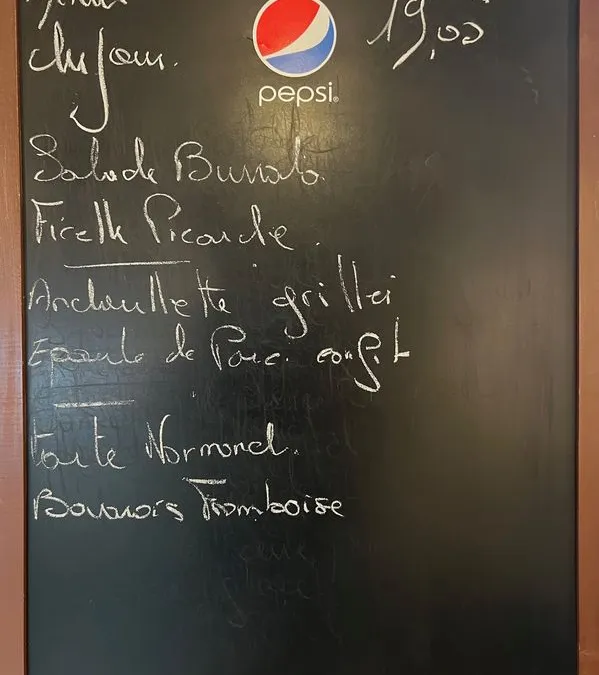 Menu
du Jour. 19,00
pepsi
Salade Burrata.
Ficelle Picarde.
Andouillette grillée
Epaule de Porc. confit
tarte Normand.
Bavarois Framboise